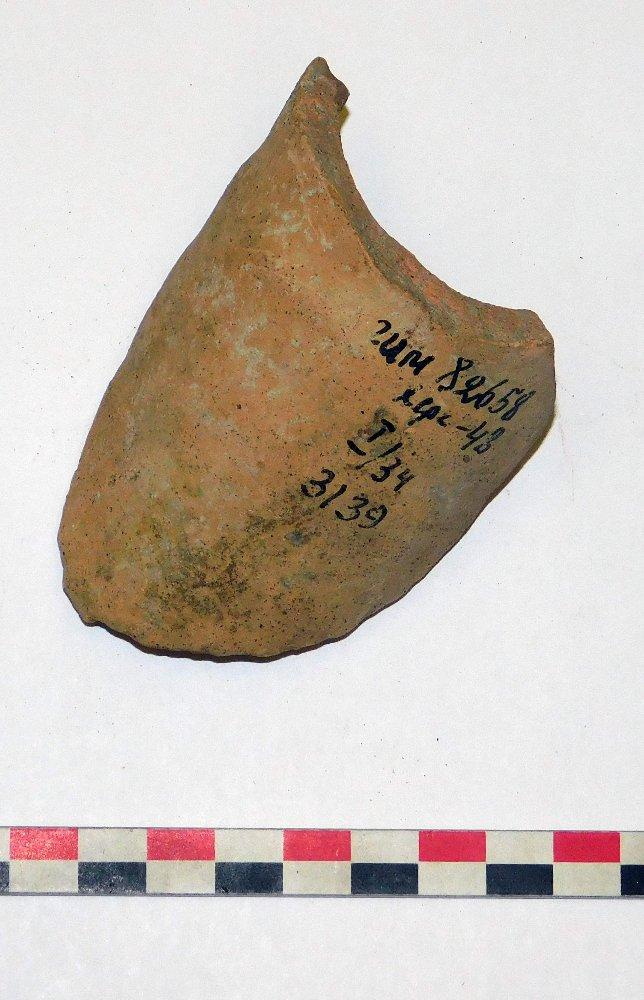 гим 82658
херс-48
I/34
3139